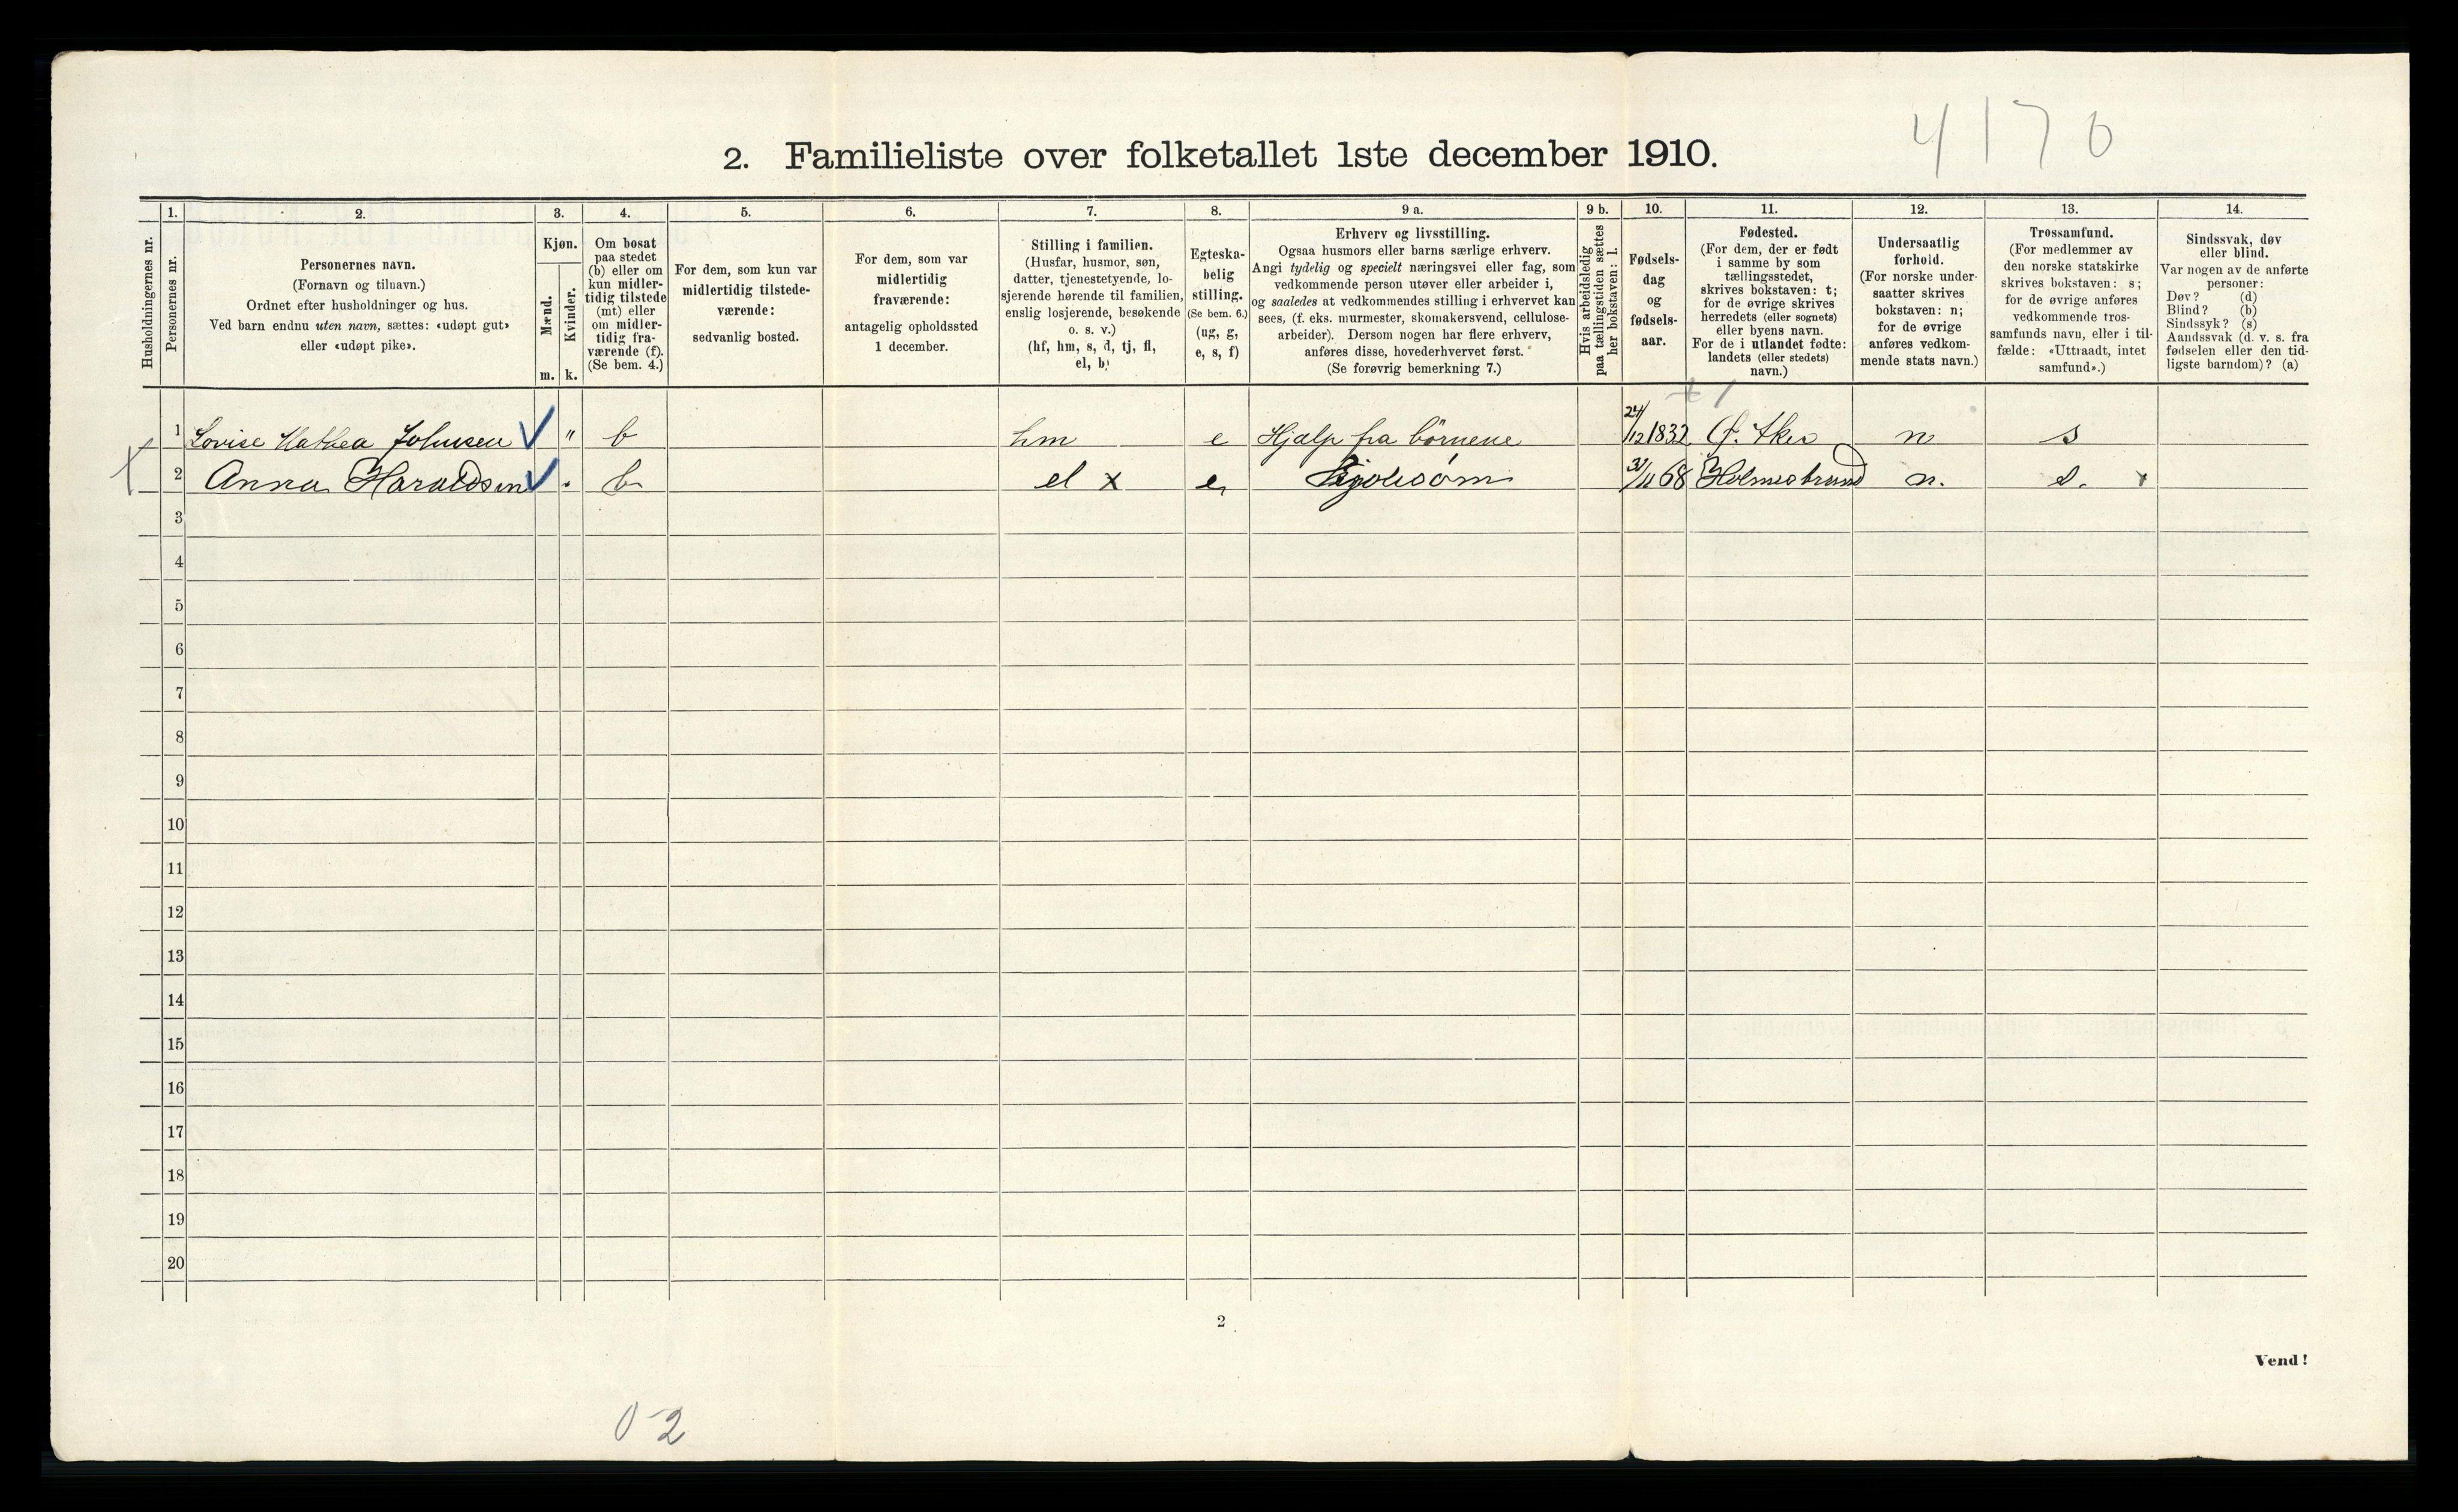 4170
2. Familieliste over folketallet 1ste december 1910.
Husholdningernes nr.
1.
Personernes nr.
2.
Personernes navn.
(Fornavn og tilnavn.)
Ordnet efter husholdninger og hus.
Ved barn endnu uten navn, sættes: «udøpt gut»
eller «udøpt pike».
3.
Kjøn.
Mænd.
Kvinder.
m. k.
4.
Om bosat
paa stedet
(b) eller om
kun midler-
tidig tilstede
(mt) eller
om midler-
tidig fra-
værende (f).
(Se bem. 4.)
5.
For dem, som kun var
midlertidig tilstede-
værende:
sedvanlig bosted.
6.
For dem, som var
midlertidig
fraværende:
antagelig opholdssted
1 december.
7.
Stilling i familien.
(Husfar, husmor, søn,
datter, tjenestetyende, lo-
sjerende hørende til familien,
enslig losjerende, besøkende
o. s. v.)
(hf, hm, s, d, tj, fl,
el, b)
8.
Egteska-
belig
stilling.
(Se bem. 6.)
(ug, g,
e, s, f)
9 a.
Erhverv og livsstilling.
Ogsaa husmors eller barns særlige erhverv.
Angi tydelig og specielt næringsvei eller fag, som
vedkommende person utøver eller arbeider i,
og saaledes at vedkommendes stilling i erhvervet kan
sees, (f. eks. murmester, skomakersvend, cellulose-
arbeider). Dersom nogen har flere erhverv,
anføres disse, hovederhvervet først.
(Se forøvrig bemerkning 7.)
9 b.
Hvis arbeidsledig
paa tællingstiden sættes
her bokstaven: l.
10.
Fødsels-
dag
og
fødsels-
aar.
11.
Fødested.
(For dem, der er født
i samme by som
tællingsstedet,
skrives bokstaven: t;
for de øvrige skrives
herredets (eller sognets)
eller byens navn.
For de i utlandet fødte:
landets (eller stedets)
navn.)
12.
Undersaatlig
forhold.
(For norske under-
saatter skrives
bokstaven: n;
for de øvrige
anføres vedkom-
mende stats navn.)
13.
Trossamfund.
(For medlemmer av
den norske statskirke
skrives bokstaven: s;
for de øvrige anføres
vedkommende tros-
samfunds navn, eller i til-
fælde: «Uttraadt, intet
samfund».)
14.
Sindssvak, døv
eller blind.
Var nogen av de anførte
personer:
Døv? (d)
Blind? (b)
Sindssyk? (s)
Aandssvak (d. v. s. fra
fødselen eller den tid-
ligste barndom)? (a)
1 Lovise Mathea Johnsen " b hm e Hjælp fra börnene 24/12 1832 Ø. Aker n s
2 Anna Haraldsen b el x e Kjolesöm /11 68 Holmestrand n. s.
3
4
5
6
7
8
9
10
11
12
13
14
15
16
17
18
19
20
2
Vend!
0-2